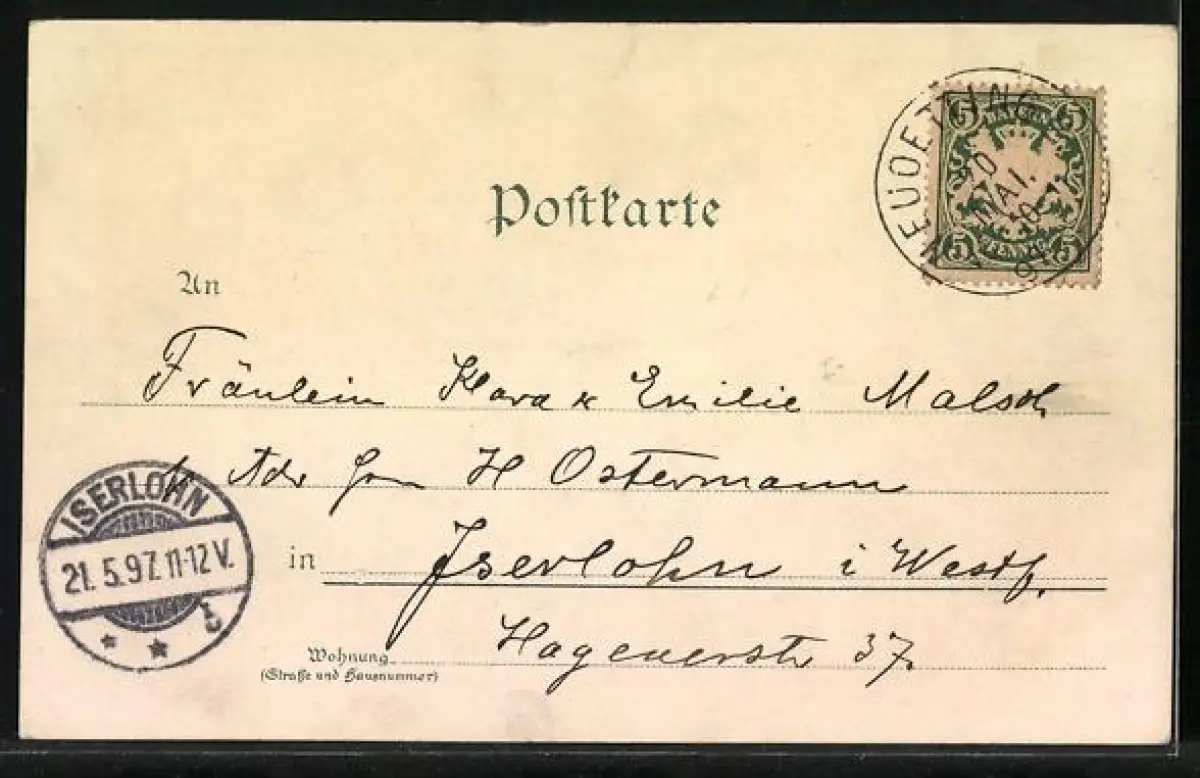 NEUOETTING
20
MAI.
10-
97
5 BAYERN 5
5 PFENNIG 5
Postkarte
An
Fräulein Klara & Emilie Malsch
Adr H Ostermann
ISERLOHN
21.5.97.11-12V.
* * b
in Iserlohn i Westf.
Hagenerstr 37.
Wohnung
(Straße und Hausnummer)